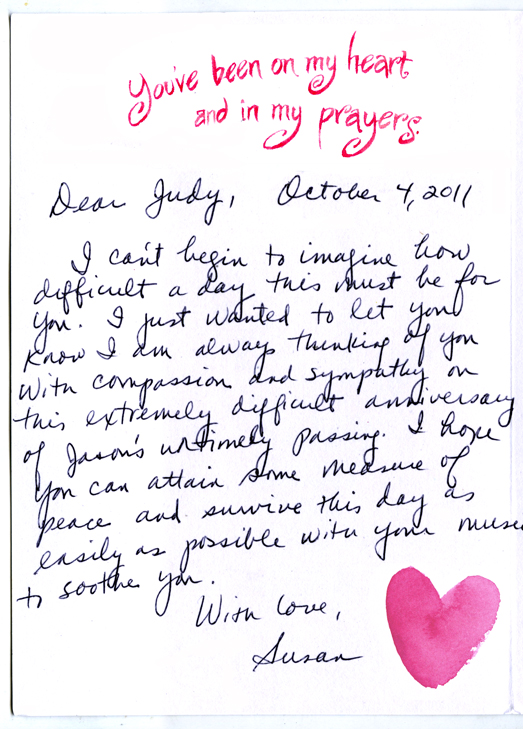 You've been on my heart
and in my prayers.
Dear Judy, October 4, 2011
I can't begin to imagine how
difficult a day this must be for
you. I just wanted to let you
know I am always thinking of you
with compassion and sympathy on
this extremely difficult anniversary
of Jason's untimely passing. I hope
you can attain some measure of
peace and survive this day as
easily as possible with your
to soothe you.
With love,
Susan